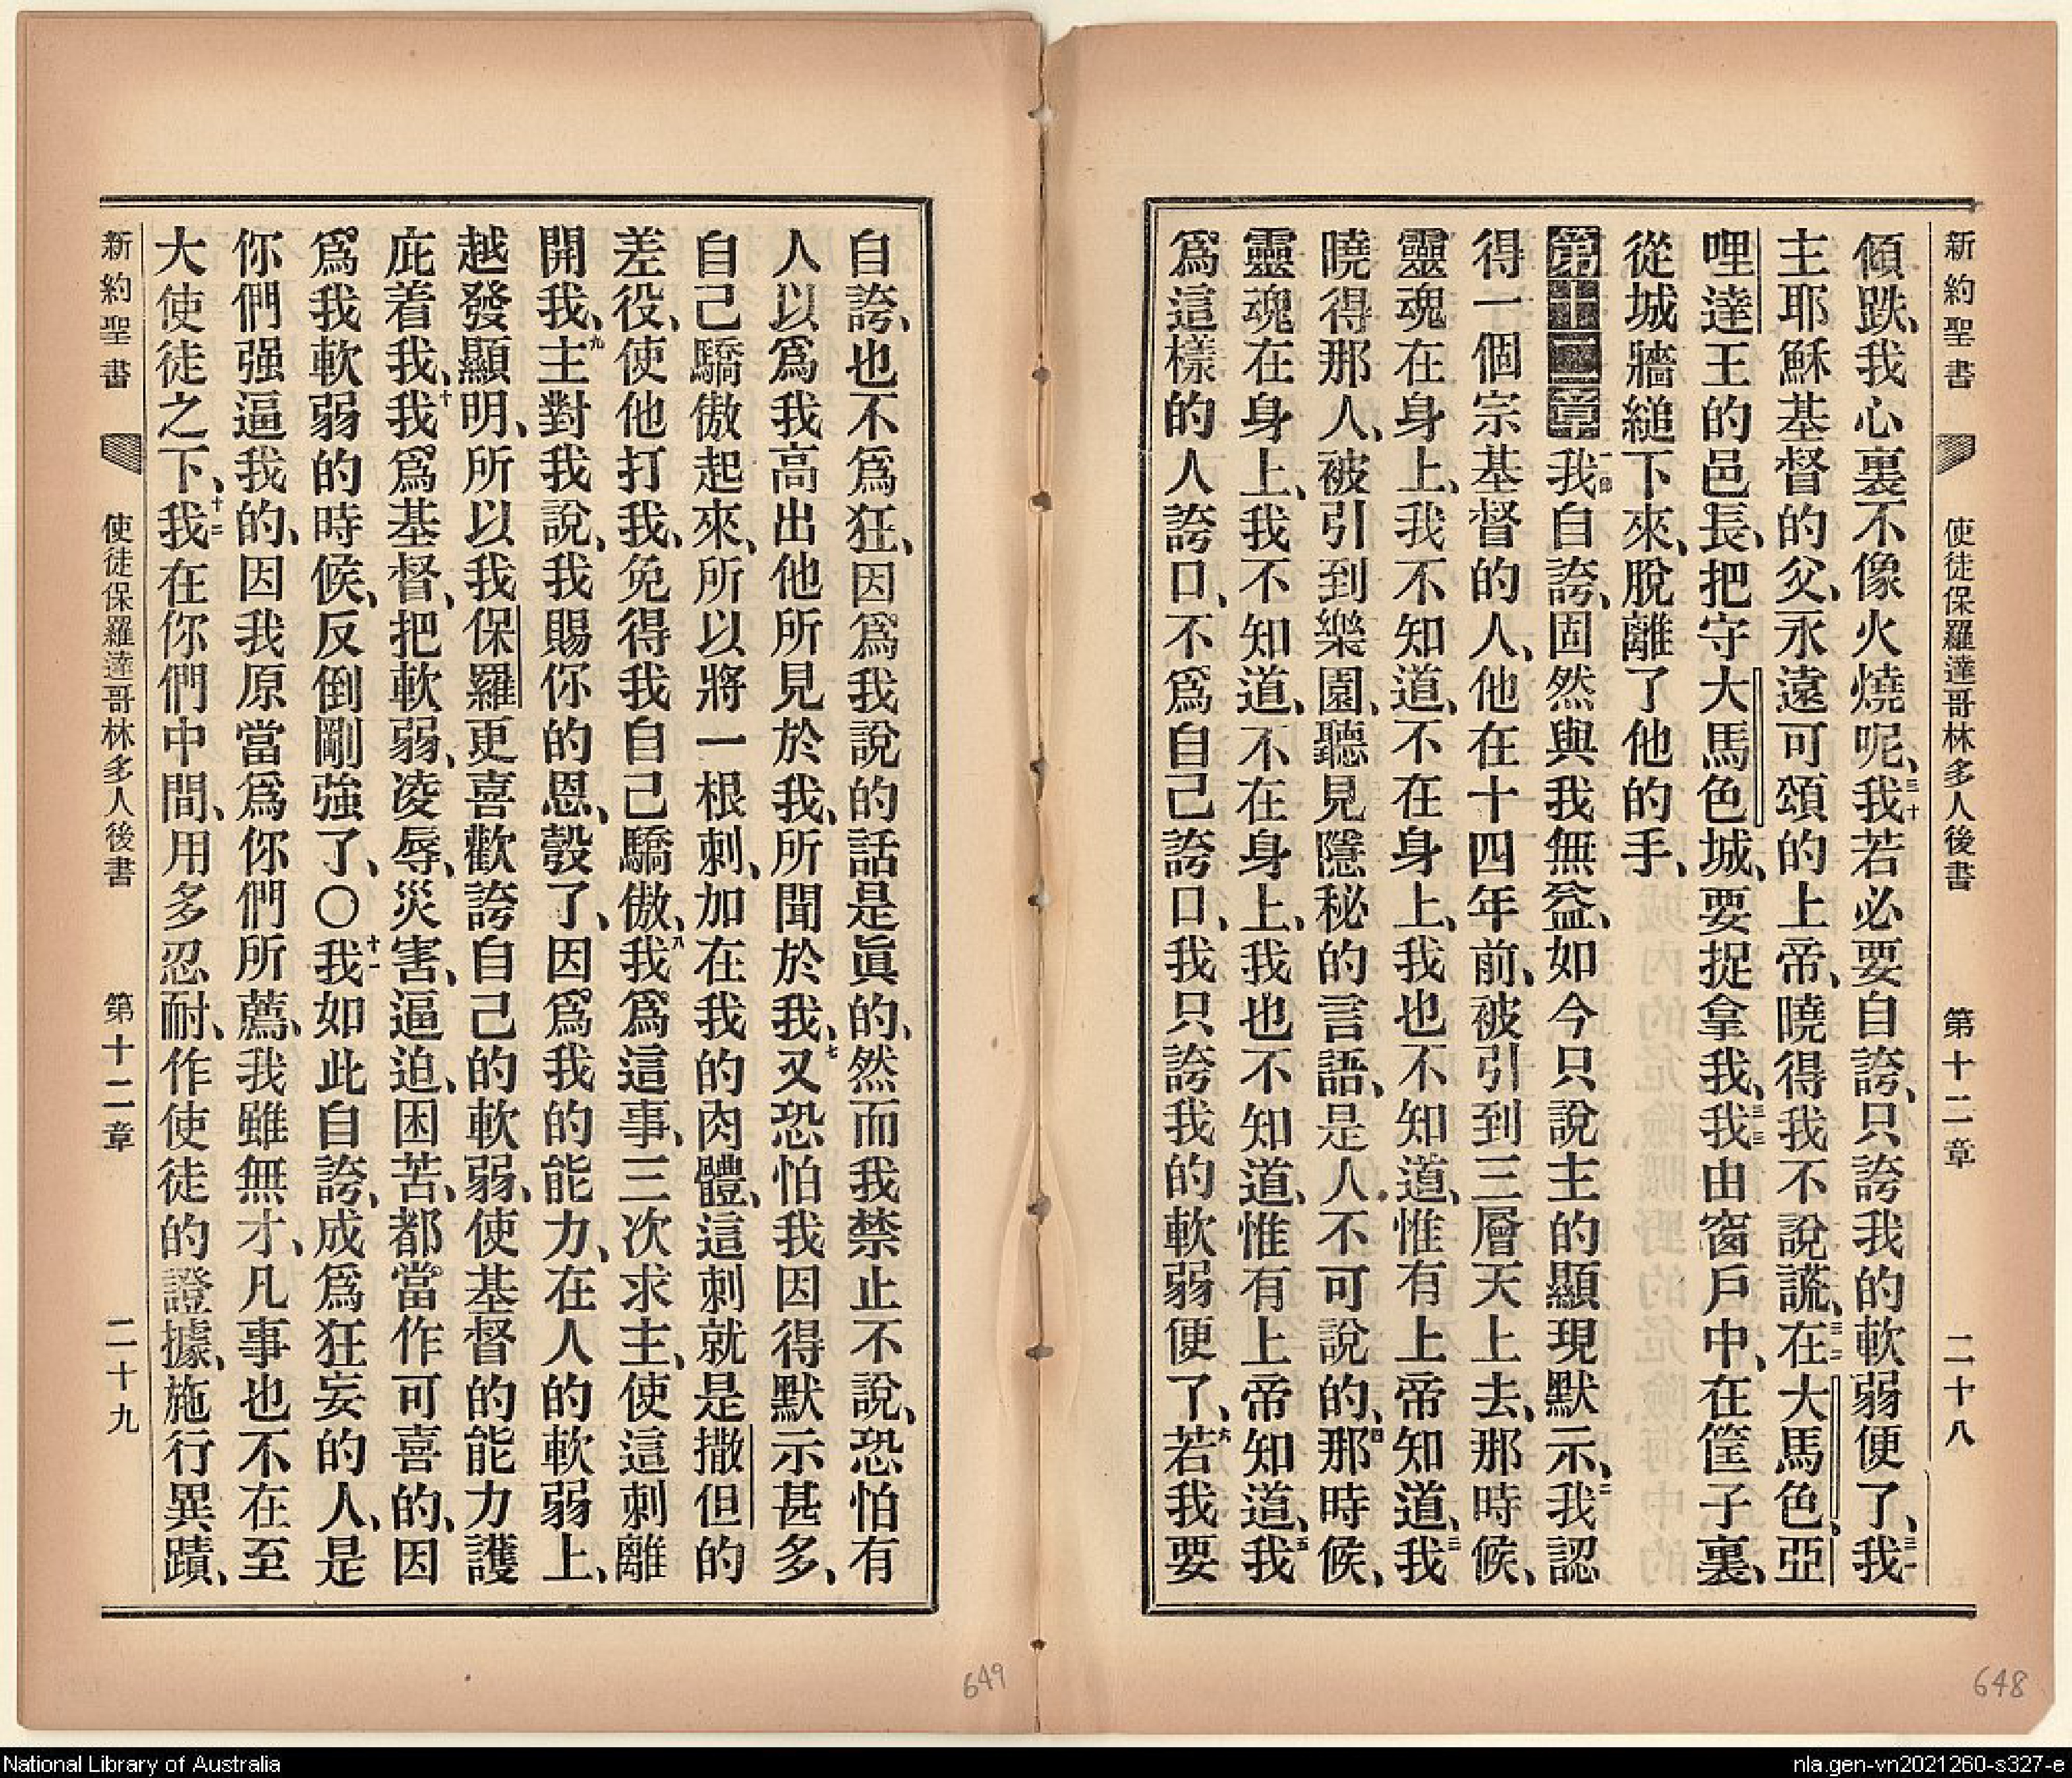 新約聖書 使徒保羅達哥林多人後書 第十二章 二十八
傾跌、我心裏不像火燒呢、三十我若必要自誇、只誇我的軟弱便了、三一我
主耶穌基督的父、永遠可頌的上帝、曉得我不說謊、三二在大馬色、亞
哩達王的邑長、把守大馬色城、要捉拿我、三三我由窗戶中、在筐子裏、
從城牆縋下來、脫離了他的手、
第十二章一節我自誇、固然與我無益、如今只說主的顯現默示、二我認
得一個宗基督的人、他在十四年前、被引到三層天上去、那時候、
靈魂在身上、我不知道、不在身上、我也不知道、惟有上帝知道、三我
曉得那人、被引到樂園、聽見隱秘的言語、是人不可說的、四那時候、
靈魂在身上、我不知道、不在身上、我也不知道、惟有上帝知道、五我
爲這樣的人誇口、不爲自己誇口、我只誇我的軟弱便了、六若我要
自誇、也不爲狂、因爲我說的話是眞的、然而我禁止不說、恐怕有
人以爲我高出他所見於我、所聞於我、七又恐怕我因得默示甚多、
自己驕傲起來、所以將一根刺、加在我的肉體、這刺就是撒但的
差役、使他打我、免得我自己驕傲、八我爲這事、三次求主、使這刺離
開我、九主對我說、我賜你的恩、彀了、因爲我的能力、在人的軟弱上、
越發顯明、所以我保羅更喜歡誇自己的軟弱、使基督的能力護
庇着我、十我爲基督、把軟弱、凌辱、災害、逼迫、困苦、都當作可喜的、因
爲我軟弱的時候、反倒剛強了、○十一我如此自誇、成爲狂妄的人、是
你們强逼我的、因我原當爲你們所薦、我雖無才、凡事也不在至
大使徒之下、十二我在你們中間、用多忍耐、作使徒的證據、施行異蹟、
新約聖書 使徒保羅達哥林多人後書 第十二章 二十九
649
648
National Library of Australia
nla.gen-vn2021260-s327-e